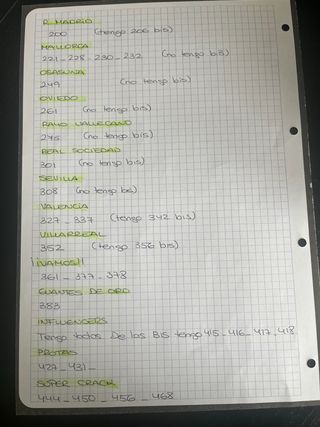 R. MADRID
200 (tengo 206 bis)
MALLORCA
221 - 228 - 230 - 232 (no tengo bis)
OSASUNA
249 (no tengo bis)
OVIEDO
261 (no tengo bis)
RAYO VALLECANO
275 (no tengo bis)
REAL SOCIEDAD
301 (no tengo bis)
SEVILLA
308 (no tengo bis)
VALENCIA
327 - 337 (tengo 342 bis)
VILLARREAL
352 (tengo 356 bis)
¡¡VAMOS!!
361 - 377 - 378
GUANTES DE ORO
383
INFLUENCERS
Tengo todos. De los BIS tengo 415 - 416 - 417 - 418
PROTAS
427 - 431 -
SÚPER CRACK
444 - 450 - 456 - 468